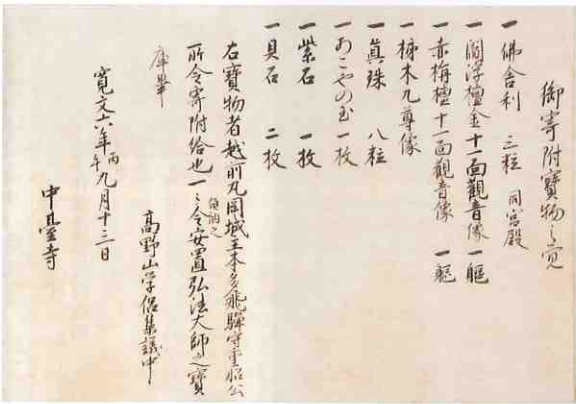 御寄附寶物之覚
一佛舎利 三粒 同宮殿
一閻浮檀金十一面觀音像 一軀
一赤栴檀十一面觀音像 一軀
一柿木九尊像
一眞珠 八粒
一あこやの玉 一枚
一紫石 一枚
一貝石 二枚
右寶物者越前丸岡城主本多飛驒守重昭公
所令寄附給也一々令安置弘法大師之寶
領納之
庫畢
寛文六年丙午九月十三日
高野山学侶集議中
中臺寺